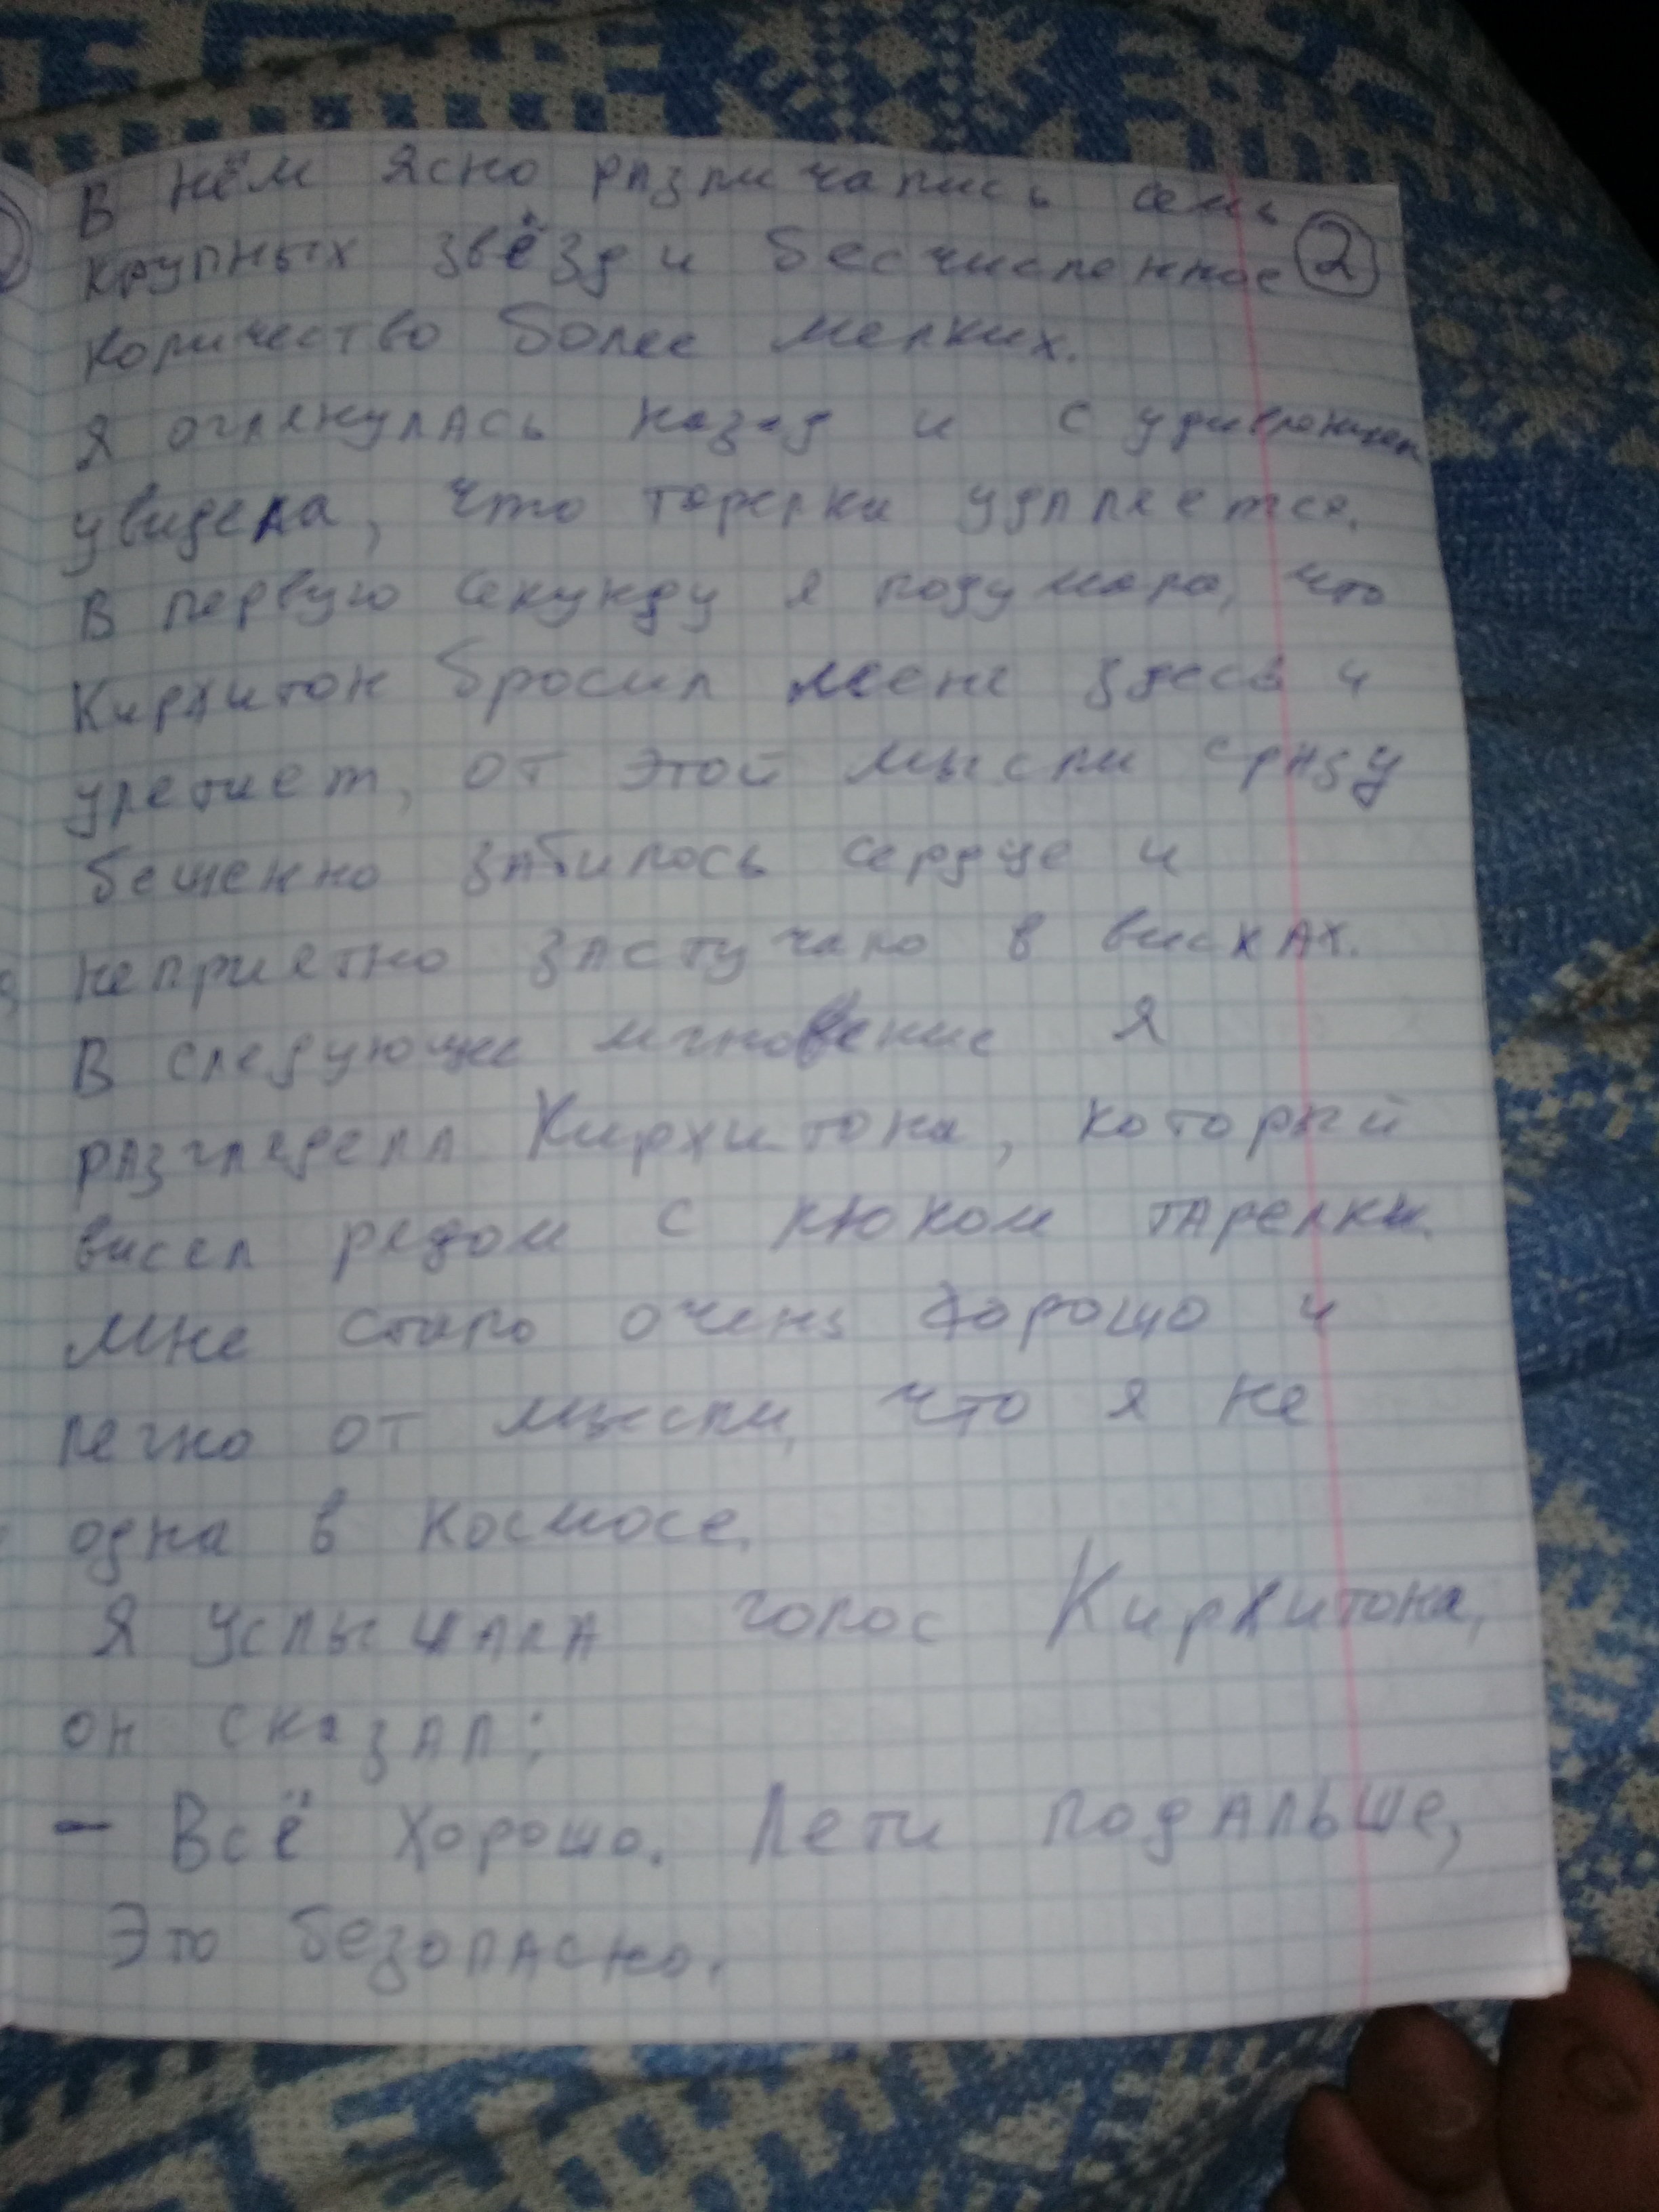 В нём ясно различались семь
крупных звёзд и бесчисленное 2
количество более мелких.
Я оглянулась назад и с удивлением
увидела, что тарелка удаляется.
В первую секунду я подумала, что
Кирхитон бросил меня здесь и
улетает, от этой мысли сразу
бешенно забилось сердце и
неприятно застучало в висках.
В следующее мгновение я
разглядела Кирхитона, который
висел рядом с люком тарелки.
Мне стало очень хорошо и
легко от мысли, что я не
одна в космосе.
Я услышала голос Кирхитона,
он сказал:
- Всё хорошо. Лети подальше,
Это безопасно.